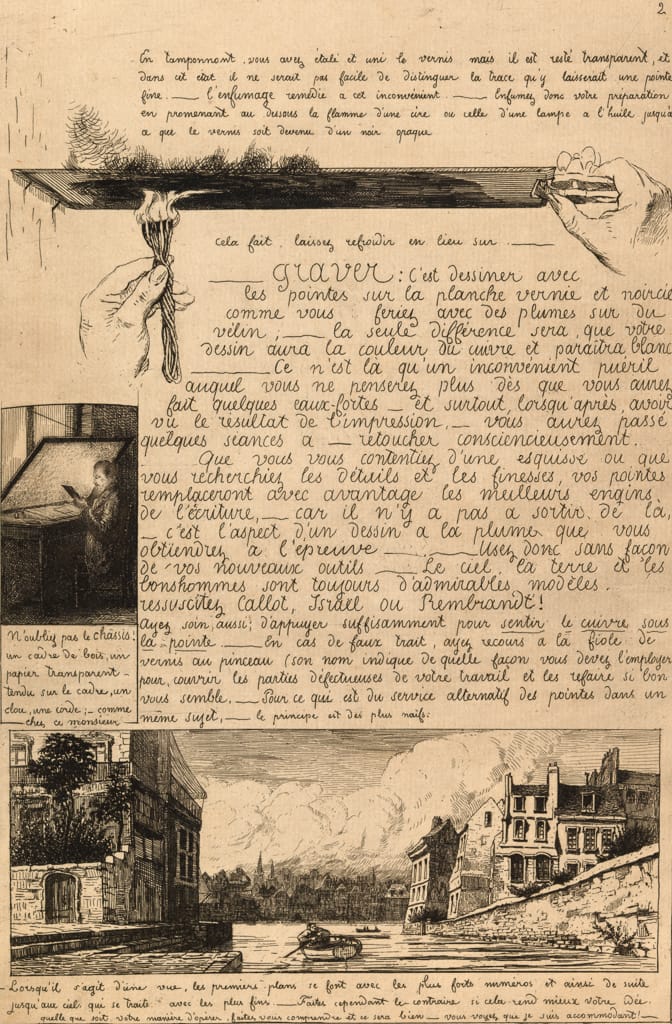 2
En tamponnant, vous avez étalé et uni le vernis mais il est resté transparent, et
dans cet état il ne serait pas facile de distinguer la trace qu'y laisserait une pointe
fine. — L'enfumage remédie a cet inconvénient. — Enfumez donc votre préparation
en promenant au dessous la flamme d'une cire ou celle d'une lampe a l'huile jusqu'à
a que le vernis soit devenu d'un noir opaque
Cela fait, laissez refroidir en lieu sur. —
— GRAVER : C'est dessiner avec
les pointes sur la planche vernie et noircie
comme vous feriez avec des plumes sur du
vélin ; — la seule différence sera, que votre
dessin aura la couleur du cuivre et paraîtra blanc
— Ce n'est là qu'un inconvénient puéril
auquel vous ne penserez plus dès que vous aurez
fait quelques eaux-fortes — et surtout, lorsqu'après, avoir
vu le résultat de l'impression, — vous aurez passé
quelques séances a — retoucher consciencieusement.
Que vous vous contentiez d'une esquisse ou que
vous recherchiez les détails et les finesses, vos pointes
remplaceront avec avantage les meilleurs engins
de l'écriture, — car il n'y a pas a sortir de la,
— c'est l'aspect d'un dessin a la plume que vous
obtiendrez a l'épreuve — — Usez donc sans façon
de vos nouveaux outils — Le ciel, la terre et les
bonshommes sont toujours d'admirables modèles.
ressuscitez Callot, Israël ou Rembrandt !
Ayez soin, aussi, d'appuyer suffisamment pour sentir le cuivre sous
la pointe. — En cas de faux trait, ayez recours a la fiole de
vernis au pinceau (son nom indique de quelle façon vous devez l'employer
pour, couvrir les parties défectueuses de votre travail et les refaire si bon
vous semble. — Pour ce qui est du service alternatif des pointes dans un
même sujet, — le principe est des plus naïfs:
N'oubliez pas le châssis !
un cadre de bois, un
papier transparent —
tendu sur le cadre, un
clou, une corde ; — comme
— chez ce monsieur —
— Lorsqu'il s'agit d'une vue, les premiers plans se font avec les plus forts numéros et ainsi de suite
jusqu'au ciel qui se traite avec les plus fins. — Faites cependant le contraire si cela rend mieux votre idée.
quelle que soit votre manière d'opérer, faites vous comprendre et ce sera bien — vous voyez que je suis accommodant ! —